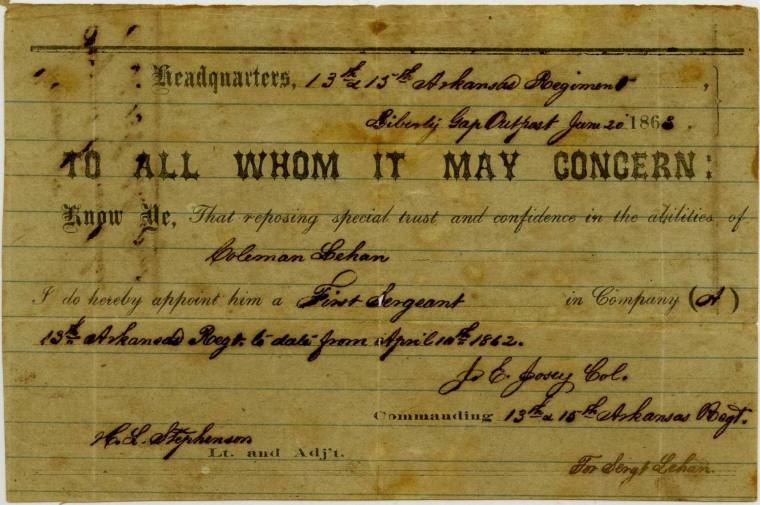 Headquarters, 13th & 15th Arkansas Regiment,
Liberty Gap Outpost June 20 1863.
TO ALL WHOM IT MAY CONCERN:
Know Ye, That reposing special trust and confidence in the abilities of
Coleman Lehan
I do hereby appoint him a First Sergeant in Company (A)
13th Arkansas Regt. to date from April 10th 1862.
J. E. Josey Col.
Commanding 13th & 15th Arkansas Regt.
H. L. Stephenson
Lt. and Adj't.
For Sergt Lehan.